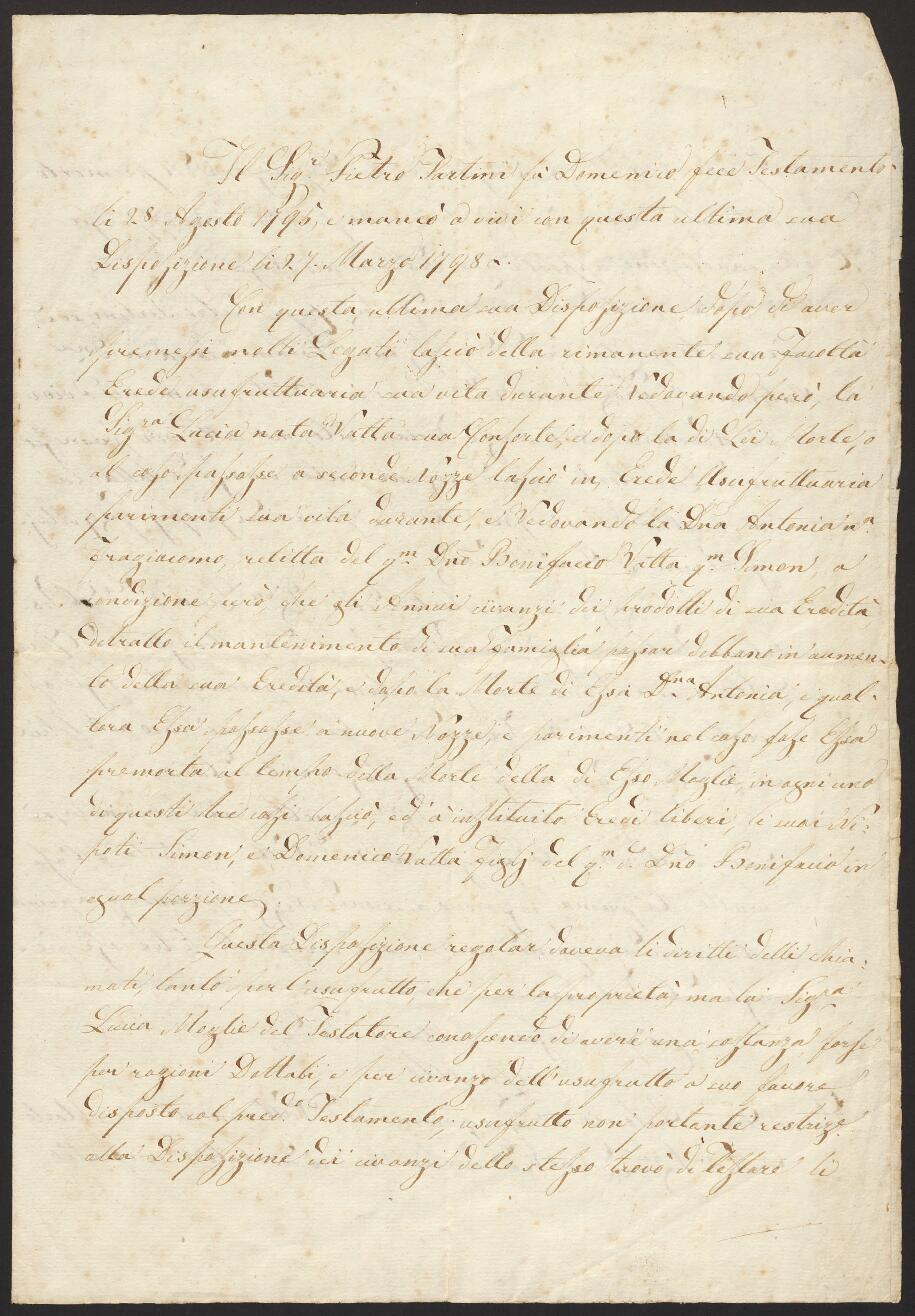 Il Sig.r Pietro Tartini fù Domenico fece Testamento
li 28 Agosto 1795, e mancò a vivi con questa ultima sua
Disposizione li 27. Marzo 1798.
Con questa ultima sua Disposizione, dopo di aver
premessi molti Legati lasciò della rimanente sua Facoltà
Erede usufruttuaria sua vita durante Vedovando però, la
Sig.ra Lucia nata Vatta sua Consorte, e dopo la di Lei Morte, o
al caso passasse a seconde Nozze lasciò in Erede Usufruttuaria
parimenti sua vita durante, e Vedovando la Dna Antonia n.a
Fragiacomo, relitta del q.m Dno Bonifacio Vatta q.m Simon, a
condizione però che gli Annui civanzi dei prodotti di sua Eredità,
detratto il mantenimento di sua Famiglia passar debbano in aumen-
to della sua Eredità, e dopo la Morte di Essa D.na Antonia, e qual-
lora Essa passasse a nuove Nozze, e parimenti nel caso fosse Essa
premorta al tempo della Morte della di Esso Moglie, in ogni uno
di questi tre casi lasciò, ed à instituito Eredi liberi, li suoi Ni-
poti Simon, e Domenico Vatta Figlj del q.m Dno Bonifacio in
egual porzione.
Questa Disposizione regolar doveva li diritti delli chia-
mati, tanto per l'usufrutto, che per la proprietà, ma la Sig.ra
Lucia Moglie del Testatore conoscendo di avere una sostanza forse
per razioni Dottali, e per civanzo dell'usufrutto a suo favore
disposto col pred.o Testamento, usufrutto non portante restrize
alla Disposizione dei civanzi dello stesso trovò di Testare li